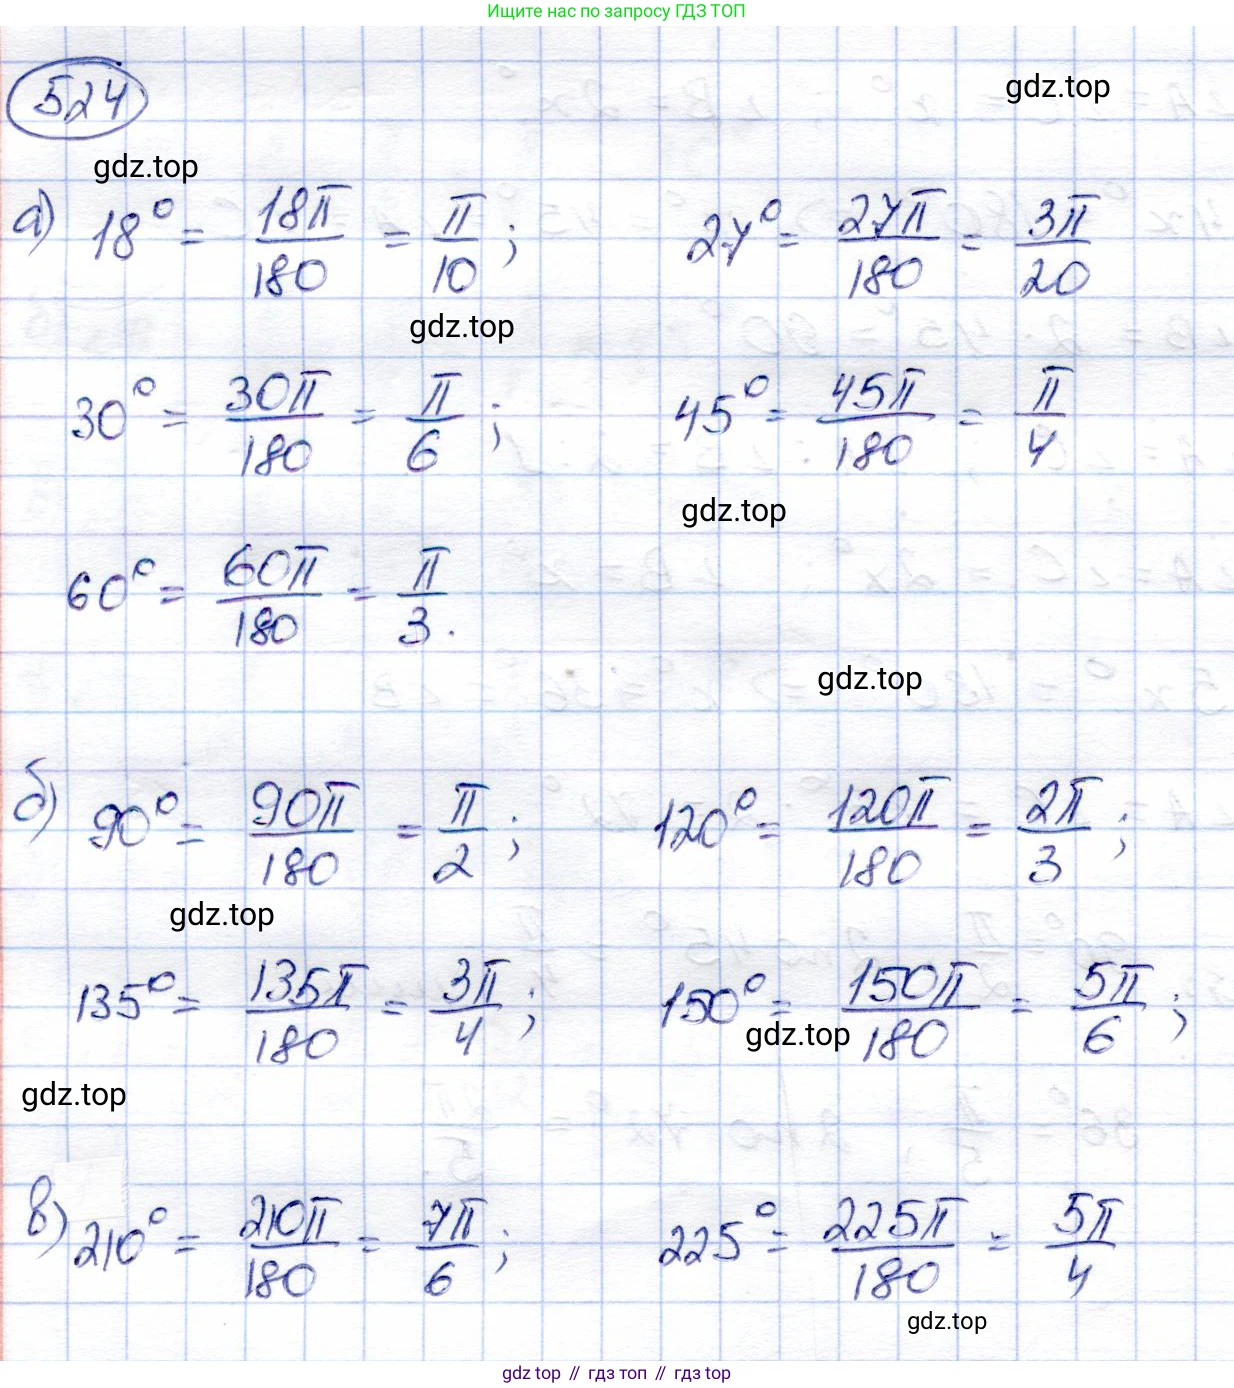 Ищите нас по запросу ГДЗ ТОП
524
gdz.top
gdz.top
а) 18° = 18π/180 = π/10 ; 27° = 27π/180 = 3π/20
gdz.top
30° = 30π/180 = π/6 ; 45° = 45π/180 = π/4
gdz.top
60° = 60π/180 = π/3 .
gdz.top
б) 90° = 90π/180 = π/2 ; 120° = 120π/180 = 2π/3 ;
gdz.top
135° = 135π/180 = 3π/4 ; 150° = 150π/180 = 5π/6 ;
gdz.top
gdz.top
в) 210° = 210π/180 = 7π/6 ; 225° = 225π/180 = 5π/4
gdz.top
gdz top // гдз топ // гдз top